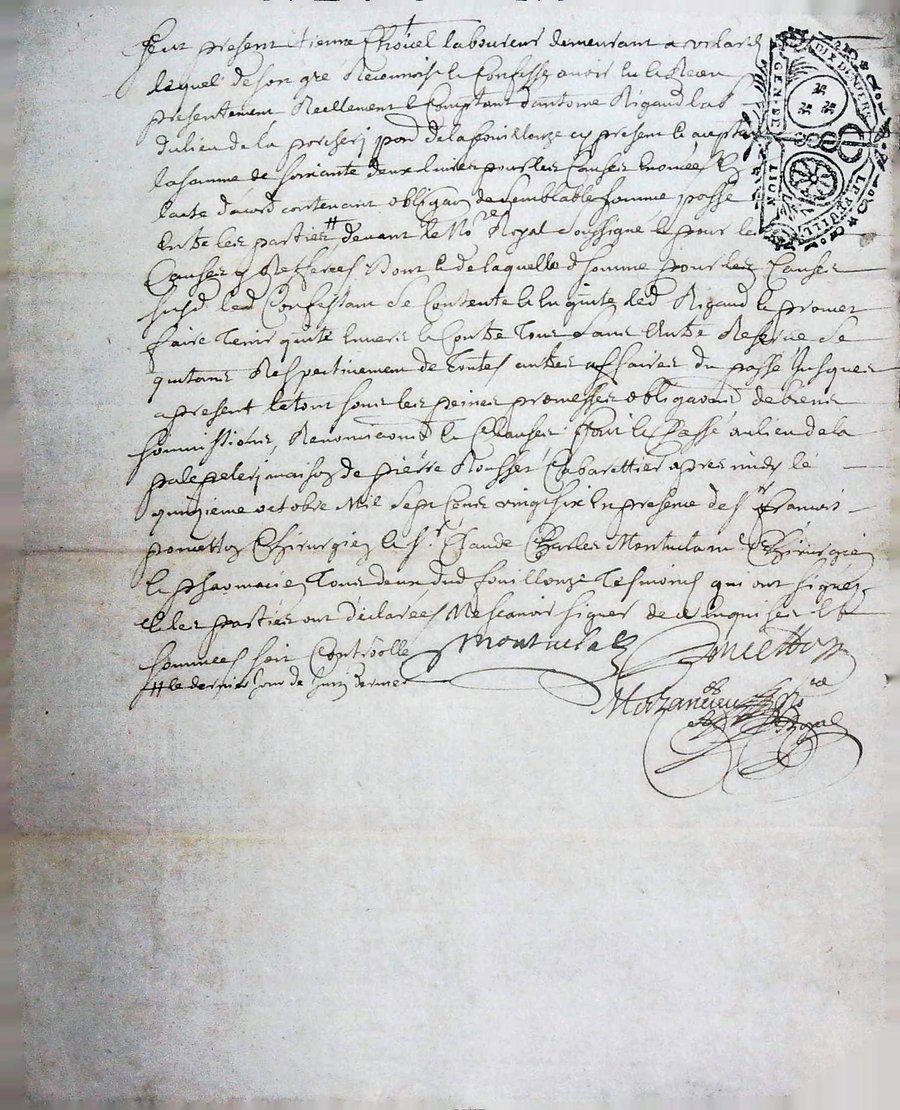 Fut present Etienne Thouel laboureur demeurant a
lequel de son gré Reconnoist & Confesse avoir eu & Receu
presentement Reellement & Comptant d'antoine Rigaud lab
du lieu de la porchery parr de la fouillouze cy present & acceptant
la somme de soixante deux livres pour les Causes enoncées
lacte dacord contenant obligaon de semblable somme passé
Entre les parties # devant le No.re Royal soussigné & pour les
Causes y Refferées Dont & de laquelle d somme pour les Causes
susd led Confessant se Contente & en quitte led Rigaud & promet
faire Tenir quitte Envers & Contre Tous sans autre Reserve se
quitans Respectivement de Toutes autres affaires du passé Jusques
a present le tout sous les peines promesses obligaons de biens
soumissions Renonciaons & Clauses fait & Passé au lieu de la
maison de pierre Rousset Cabarettier apres midy le
quinzieme octobre Mil Sept Cens vingt six En presence de Sr francois
poncetton Chirurgien & Sr. Claude Charles Chirurgien
& pharmacien Tous deux dud fouillouze Tesmoins qui ont signés
& les parties ont declarées Ne scavoir signer de ce Enquises &
sommées soit Controolle
# le dernier jour de juin dernier
Poncetton
Royal
GEN. DE
LION
DIX DENIERS
LA FEUILLE